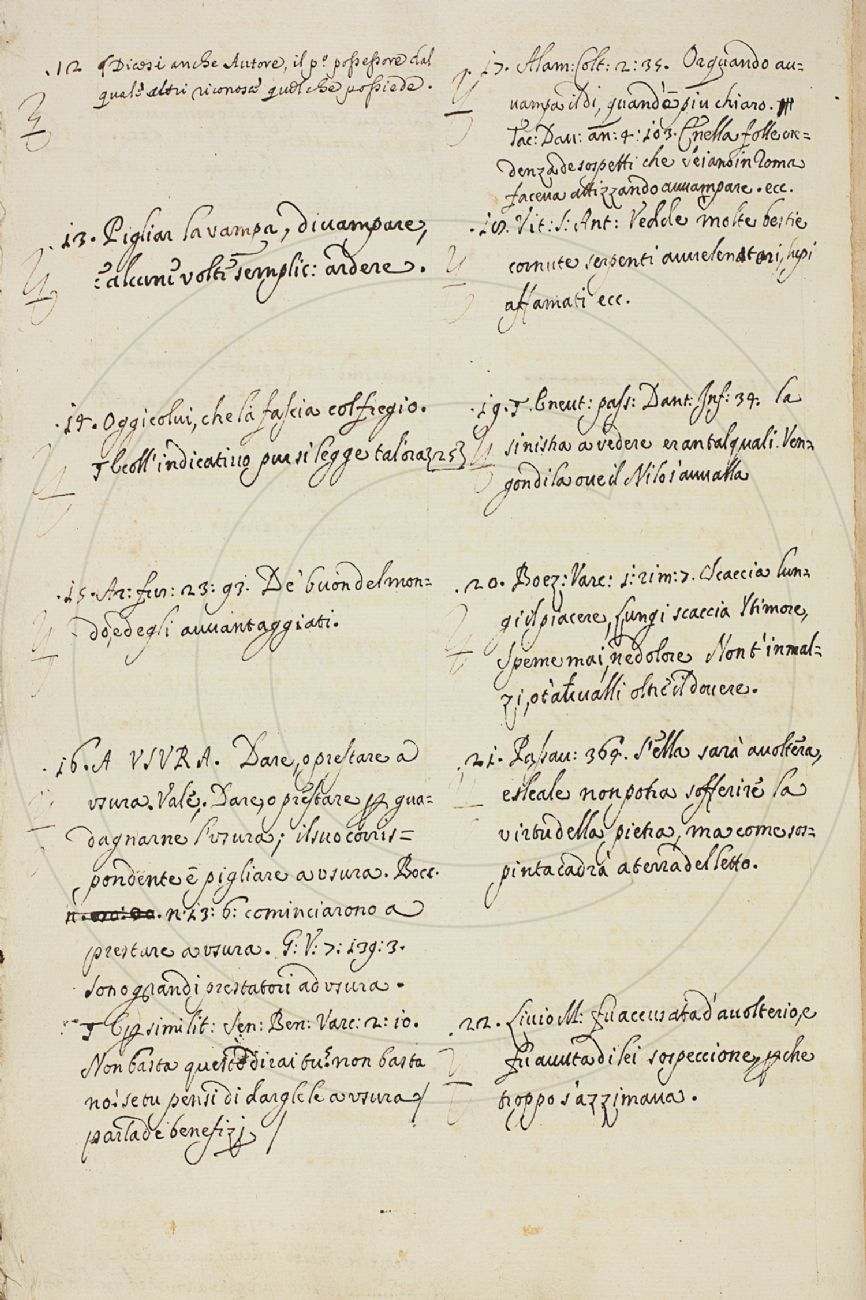 .12 ¶ Dicesi anche Autore, il p.º possessore dal
quale altri riconosce quel che possiede.
.13. Pigliar la vampa, divampare,
e alcune volte semplic: ardere.
.14. Oggi colui, che la fascia col fregio.
¶ E coll'indicativo pur si legge talora {25}
.15. Ar: fur: 23: 93. De' buon del mon=
do, e degli avvantaggiati.
.16. A VSVRA. Dare, o prestare a
vsura. Vale, Dare, o prestare p gua=
dagnarne l'vsura; il suo corris=
pondente è pigliare a vsura. Bocc.
n. 13: 6: cominciarono a
prestare a vsura. G: V: 7: 139: 3.
sono grandi prestatori ad vsura.
¶ E p similit: Sen: Ben: Varc: 2: 10.
Non basta questo dirai tu? non basta
no: se tu pensi di dargle le a vsura /
parla de benefizj /
.17. Alam: Colt: 2: 35. Or quando au=
uampa il di, quand'è piu chiaro.
Tac: Dau: an: 4: 103. E nella folle cre=
denza de sospetti che Seiano in Roma
faceua attizzando auuampare. ecc.
.18. Vit: S: Ant: Vedde molte bestie
cornute serpenti auuelenatori, lupi
affamati ecc.
.19. ¶. E neut: pass: Dant: Inf: 34. la
sinistra a vedere eran tal quali. Ven=
gon di la oue il Nilo s'auualla
.20. Boez: Varc: 1: rim: 7. Scaccia lun=
gi il piacere, Lungi scaccia Il timore,
Speme mai, ne dolore Non t'innal=
zi, o t'auualli oltr'il douere.
.21. Passau: 364. S'ella sarà auoltera,
e sleale non potra sofferire la
virtu della pietra, ma come sos=
pinta cadrà a terra del letto.
.22. Liuio M: fu accusata d'auolterio, e
fu auuta di lei sospeccione, p che
troppo s'azzimaua.